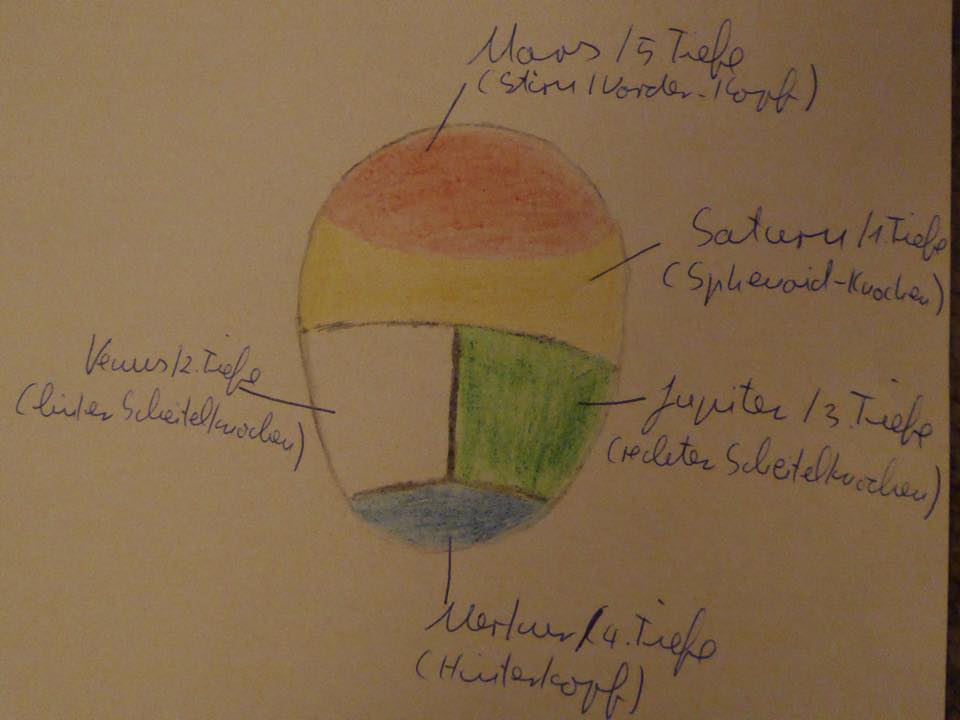 Mars / 5 Tiefe
(Stirn / Vorder-Kopf)
Saturn / 1 Tiefe
(Sphenoid-Knochen)
Venus / 2. Tiefe
(linker Scheitelknochen)
Jupiter / 3. Tiefe
(rechter Scheitelknochen)
Merkur / 4. Tiefe
(Hinterkopf)